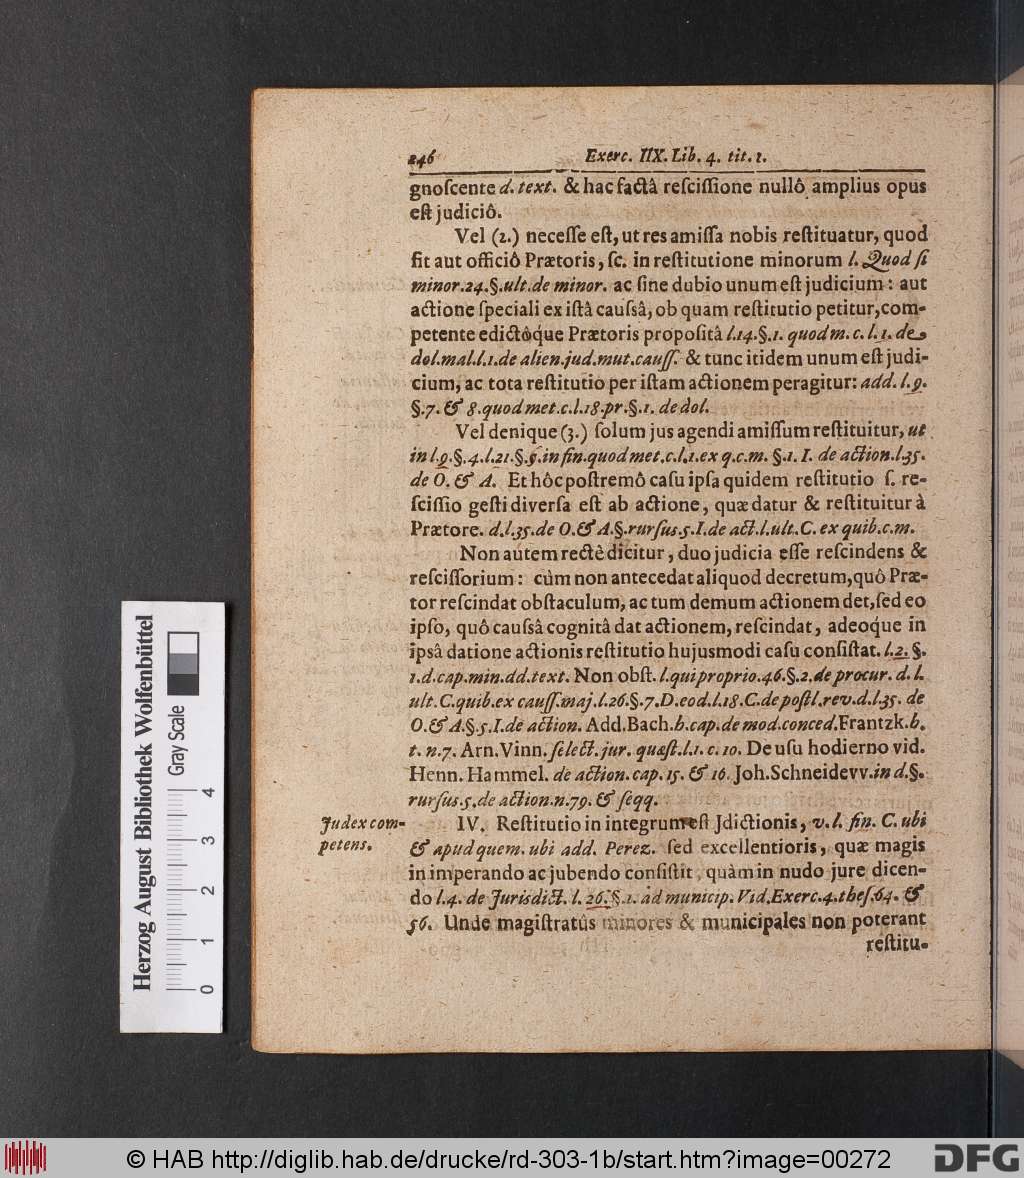 246 Exerc. IIX. Lib. 4. tit. 1.
gnoſcente d. text. & hac factâ reſciſſione nullô amplius opus
eſt judiciô.
Vel (2.) neceſſe eſt, ut res amiſſa nobis reſtituatur, quod
fit aut officiô Prætoris, ſc. in reſtitutione minorum l. Quod ſi
minor. 24. §. ult. de minor. ac ſine dubio unum eſt judicium: aut
actione ſpeciali ex iſtâ cauſsâ, ob quam reſtitutio petitur, com-
petente edictôq́ue Prætoris propoſitâ l. 14. §. 1. quod m. c. l. 1. de
dol. mal. l. 1. de alien. jud. mut. cauſſ. & tunc itidem unum eſt judi-
cium, ac tota reſtitutio per iſtam actionem peragitur: add. l. 9.
§. 7. & 8. quod met. c. l. 18. pr. §. 1. de dol.
Vel denique (3.) ſolum jus agendi amiſſum reſtituitur, ut
in l. 9. §. 4. l. 21. §. 6. in fin. quod met. c. l. 1. ex q. c. m. §. 1. I. de action. l. 35.
de O. & A. Et hôc poſtremô caſu ipſa quidem reſtitutio ſ. re-
ſciſſio geſti diverſa eſt ab actione, quæ datur & reſtituitur à
Prætore. d. l. 35. de O. & A. §. rurſus. 5. I. de act. l. ult. C. ex quib. c. m.
Non autem rectè dicitur, duo judicia eſſe reſcindens &
reſciſſorium: cùm non antecedat aliquod decretum, quô Præ-
tor reſcindat obſtaculum, ac tum demum actionem det, ſed eo
ipſo, quô cauſsâ cognitâ dat actionem, reſcindat, adeoque in
ipsâ datione actionis reſtitutio hujusmodi caſu conſiſtat. l. 2. §.
1. d. cap. min. dd. text. Non obſt. l. qui proprio. 46. §. 2. de procur. d. l.
ult. C. quib. ex cauſſ. maj. l. 26. §. 7. D. eod. l. 18. C. de poſtl. rev. d. l. 35. de
O. & A. §. 5. I. de action. Add. Bach. h. cap. de mod. conced. Frantzk. h.
t. n. 7. Arn. Vinn. ſelect. jur. quæſt. l. 1. c. 10. De uſu hodierno vid.
Henn. Hammel. de action. cap. 15. & 16. Joh. Schneidevv. in d. §.
rurſus. 5. de action. n. 79. & ſeqq.
Judex com-
petens.
IV. Reſtitutio in integrum eſt Jdictionis, v. l. fin. C. ubi
& apud quem. ubi add. Perez. ſed excellentioris, quæ magis
in imperando ac jubendo conſiſtit, quàm in nudo jure dicen-
do l. 4. de Jurisdict. l. 26. §. 1. ad municip. Vid. Exerc. 4. theſ. 64. &
56. Unde magiſtratûs minores & municipales non poterant
reſtitu-
Herzog August Bibliothek Wolfenbüttel
Gray Scale
0 1 2 3 4
© HAB http://diglib.hab.de/drucke/rd-303-1b/start.htm?image=00272
DFG